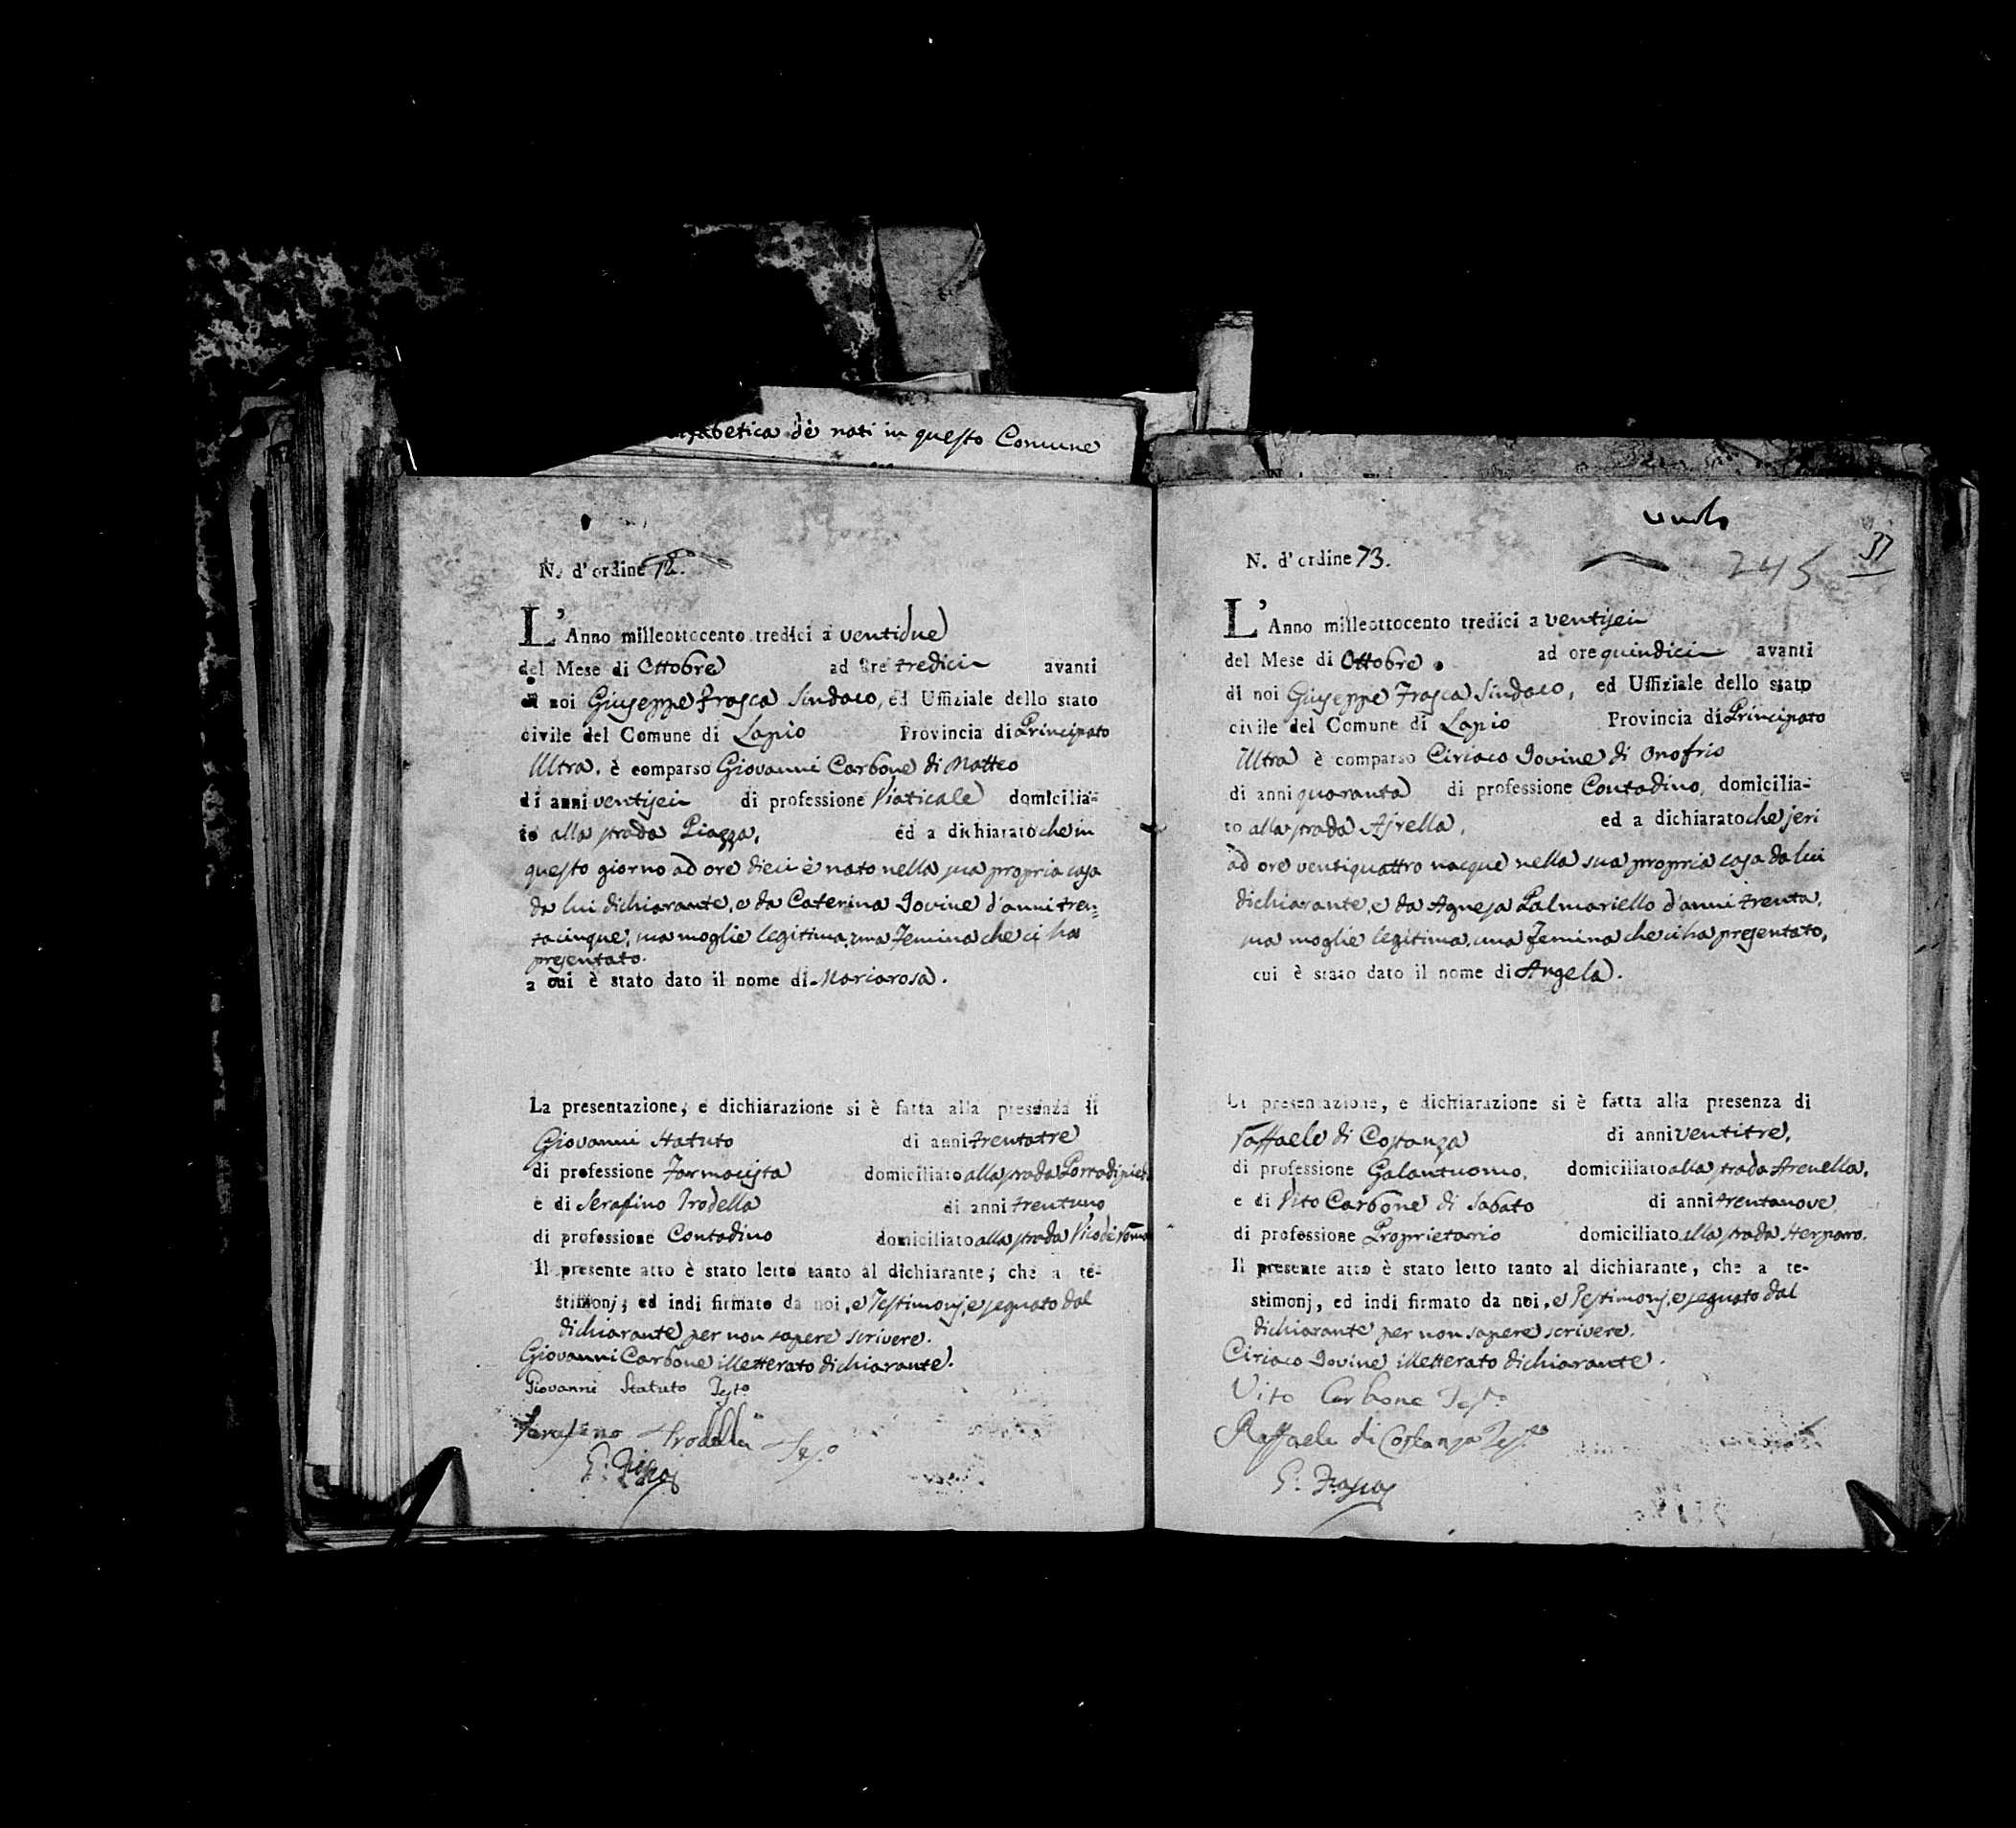 alfabetica de nati in questo Comune
N. d'ordine 72.
L'Anno milleottocento tredici a ventidue
del Mese di Ottobre ad ore tredici avanti
di noi Giuseppe Frasca Sindaco, ed Uffiziale dello stato
civile del Comune di Lapio Provincia di Principato
Ultra. è comparso Giovanni Carbone di Matteo
di anni ventisei di professione Viaticale domicilia-
to alla strada Piazza, ed a dichiarato che in
questo giorno ad ore dieci è nato nella sua propria casa
da lui dichiarante, e da Caterina Iovine d'anni tren=
tacinque, sua moglie legitima, una Femina che ci ha
presentato.
a cui è stato dato il nome di Mariarosa.
La presentazione, e dichiarazione si è fatta alla presenza di
Giovanni Statuto di anni trentatre
di professione Farmacista domiciliato alla strada
e di Serafino Trodella di anni trentuno
di professione Contadino domiciliato alla strada
Il presente atto è stato letto tanto al dichiarante, che a te-
stimonj, ed indi firmato da noi, e Testimonj, e segnato dal
dichiarante per non sapere scrivere.
Giovanni Carbone illetterato dichiarante.
Giovanni Statuto Testo
Serafino Trodella Teso
G. Frasca
37
245
N. d'ordine 73.
L'Anno milleottocento tredici a ventisei
del Mese di Ottobre ad ore quindici avanti
di noi Giuseppe Frasca Sindaco, ed Uffiziale dello stato
civile del Comune di Lapio Provincia di Principato
Ultra è comparso Ciriaco Iovine di Onofrio
di anni quaranta di professione Contadino, domicilia-
to alla strada Airella, ed a dichiarato che jeri
ad ore ventiquattro nacque nella sua propria casa da lui
dichiarante, e da Agnesa Palmariello d'anni trenta,
sua moglie legitima, una Femina che ci ha presentato,
cui è stato dato il nome di Angela.
La presentazione, e dichiarazione si è fatta alla presenza di
Raffaele di Costanza di anni ventitre,
di professione Galantuomo, domiciliato alla strada Arenella,
e di Vito Carbone di Sabato di anni trentanove,
di professione Proprietario domiciliato alla strada
Il presente atto è stato letto tanto al dichiarante, che a te-
stimonj, ed indi firmato da noi, e Testimonj, e segnato dal
dichiarante per non sapere scrivere.
Ciriaco Iovine illetterato dichiarante.
Vito Carbone Testo
Raffaele di Costanza Testo
G. Frasca